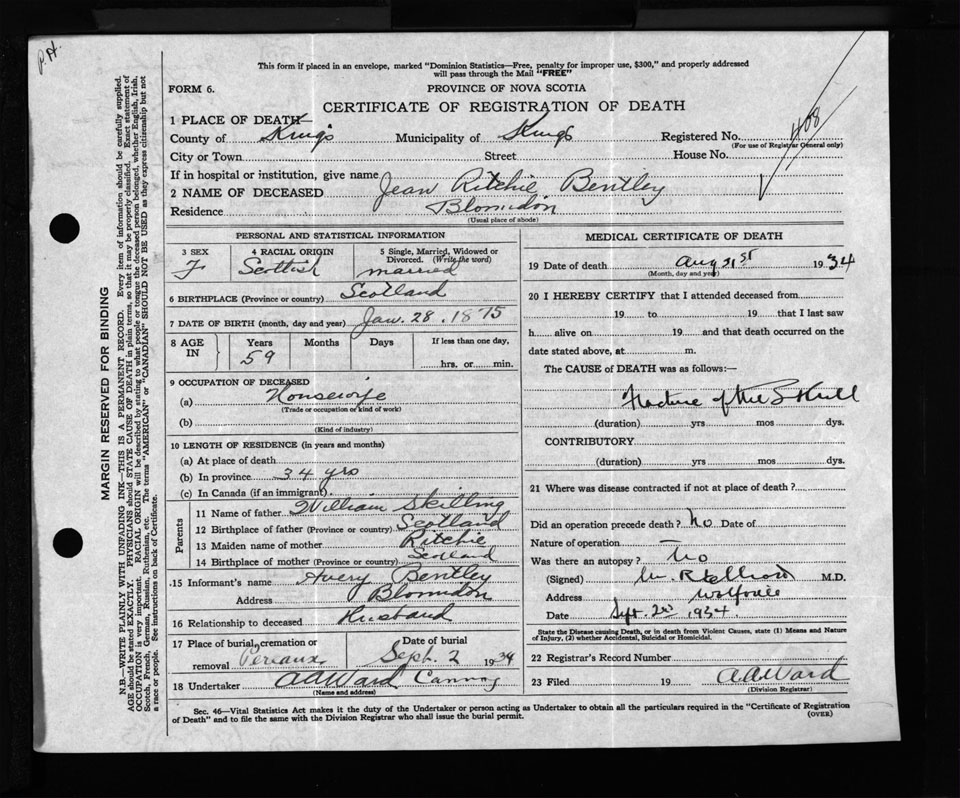 P.H.
This form if placed in an envelope, marked "Dominion Statistics—Free, penalty for improper use, $300," and properly addressed
will pass through the Mail "FREE"
FORM 6.
PROVINCE OF NOVA SCOTIA
CERTIFICATE OF REGISTRATION OF DEATH
1 PLACE OF DEATH
County of Kings Municipality of Kings Registered No. 408
(For use of Registrar General only)
City or Town Street House No.
If in hospital or institution, give name
2 NAME OF DECEASED Jean Ritchie Bentley
Residence Blomidon
(Usual place of abode)
PERSONAL AND STATISTICAL INFORMATION
3 SEX F
4 RACIAL ORIGIN Scottish
5 Single, Married, Widowed or Divorced. (Write the word) married
6 BIRTHPLACE (Province or country) Scotland
7 DATE OF BIRTH (month, day and year) Jan. 28. 1875
8 AGE IN Years Months Days If less than one day,
59 hrs. or min.
9 OCCUPATION OF DECEASED
(a) Housewife
(Trade or occupation or kind of work)
(b)
(Kind of industry)
10 LENGTH OF RESIDENCE (in years and months)
(a) At place of death
(b) In province 34 yrs
(c) In Canada (if an immigrant)
Parents
11 Name of father William Skilling
12 Birthplace of father (Province or country) Scotland
13 Maiden name of mother Ritchie
14 Birthplace of mother (Province or country) Scotland
15 Informant's name Avery Bentley
Address Blomidon
16 Relationship to deceased Husband
17 Place of burial, cremation or removal Pereaux
Date of burial Sept. 2 1934
18 Undertaker AA Ward Canning
(Name and address)
MEDICAL CERTIFICATE OF DEATH
19 Date of death Aug 31st 1934
(Month, day and year)
20 I HEREBY CERTIFY that I attended deceased from
19 to 19 that I last saw
h alive on 19 and that death occurred on
date stated above, at m.
The CAUSE of DEATH was as follows:—
Fracture of the Skull
(duration) yrs mos dys.
CONTRIBUTORY
(duration) yrs mos dys.
21 Where was disease contracted if not at place of death?
Did an operation precede death? no Date of
Nature of operation
Was there an autopsy? no
(Signed) M.D.
Address Wolfville
Date Sept. 1934
State the Disease causing Death, or in death from Violent Causes, state (1) Means and Nature
of Injury, (2) whether Accidental, Suicidal or Homicidal.
22 Registrar's Record Number
23 Filed 19 AA Ward
(Division Registrar)
Sec. 46—Vital Statistics Act makes it the duty of the Undertaker or person acting as Undertaker to obtain all the particulars required in the "Certificate of Registration
of Death" and to file the same with the Division Registrar who shall issue the burial permit.
(OVER)
MARGIN RESERVED FOR BINDING
N.B.—WRITE PLAINLY WITH UNFADING INK—THIS IS A PERMANENT RECORD. Every item of information should be carefully supplied.
AGE should be stated EXACTLY. PHYSICIANS should STATE CAUSE OF DEATH in plain terms, so that it may be properly classified. Exact statement of
OCCUPATION is very important. RACIAL ORIGIN will be described by stating to what people or tongue the deceased person belonged, whether English, Irish,
Scotch, French, German, Russian, Ruthenian, etc. The terms "AMERICAN" or "CANADIAN" SHOULD NOT BE USED as they express citizenship but not
a race or people. See instructions on back of Certificate.